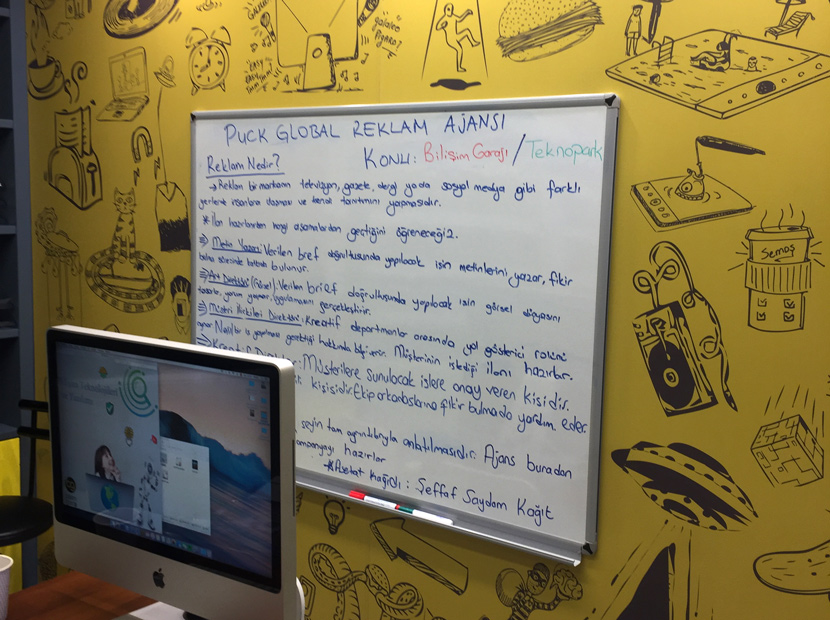 PUCK GLOBAL REKLAM AJANSI
KONU: Bilişim Garajı / Teknopark
Reklam Nedir?
→ Reklam bir markanın televizyon, gazete, dergi ya da sosyal medya gibi farklı
yerlerde insanlara ulaşması ve kendi tanıtımını yapmasıdır.
* İlan hazırlanırken hangi aşamalardan geçtiğini öğreneceğiz.
⇒ Metin Yazarı: Verilen bref doğrultusunda yapılacak işin metinlerini yazar, fikir
bulma sürecinde katkıda bulunur.
⇒ Art Direktör: Verilen brief doğrultusunda yapılacak işin görsel dünyasını
tasarlar, yorum yapar, uygulamasını gerçekleştirir.
⇒ Müşteri İlişkileri Direktörü: Kreatif departmanlar arasında yol gösterici rolünü
oynar. Nasıl bir iş yapılması gerektiği hakkında bilgi verir. Müşterinin istediği ilanı hazırlar.
⇒ Kreatif D : Müşterilere sunulacak işlere onay veren kişidir.
kişisidir. Ekip arkadaşlarına fikir bulmada yardım eder.
şeyin tam ayrıntılarıyla anlatılmasıdır. Ajans buradan
ampanyayı hazırlar
* Asetat Kağıdı: Şeffaf Saydam Kağıt
Semoş